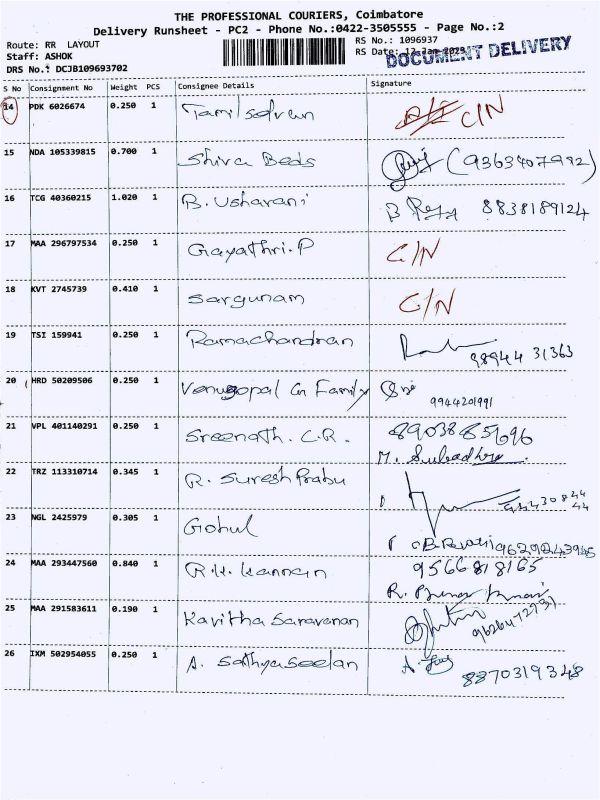 THE PROFESSIONAL COURIERS, Coimbatore
Delivery Runsheet - PC2 - Phone No.:0422-3505555 - Page No.:2
Route: RR LAYOUT
RS No.: 1096937
Staff: ASHOK
RS Date: 12-Jan-2023
DOCUMENT DELIVERY
DRS No.: DCJB109693702
S No Consignment No Weight PCS Consignee Details Signature
14 PDK 6026674 0.250 1 Tamilselvan C/N
15 NDA 105339815 0.700 1 Shiva Beds (9363407992)
16 TCG 40360215 1.020 1 B. Usharani 8838189124
17 MAA 296797534 0.250 1 Gayathri.P C/N
18 KVT 2745739 0.410 1 Sargunam C/N
19 TSI 159941 0.250 1 Ramachandran 98944 31363
20 HRD 50209506 0.250 1 Venugopal Family
9944201991
21 VPL 401140291 0.250 1 Sreenath. C.R. 8903885696
M. Subadhra
22 TRZ 113310714 0.345 1 R. Suresh Prabu
23 NGL 2425979 0.305 1 Gohul
B. Revathi 9629243945
24 MAA 293447560 0.840 1 R.H. Kannan 9566818165
25 MAA 291583611 0.190 1 Kavitha Saravanan
26 IXM 502954055 0.250 1 A. Sathyaseelan 8870319348